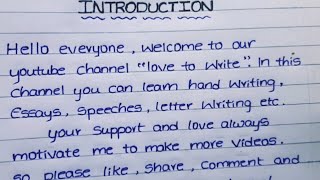 INTRODUCTION
Hello everyone, welcome to our
youtube channel "love to write". In this
channel you can learn hand writing,
Essays, speeches, letter writing etc.
your support and love always
motivate me to make more videos.
so please like, share, comment and